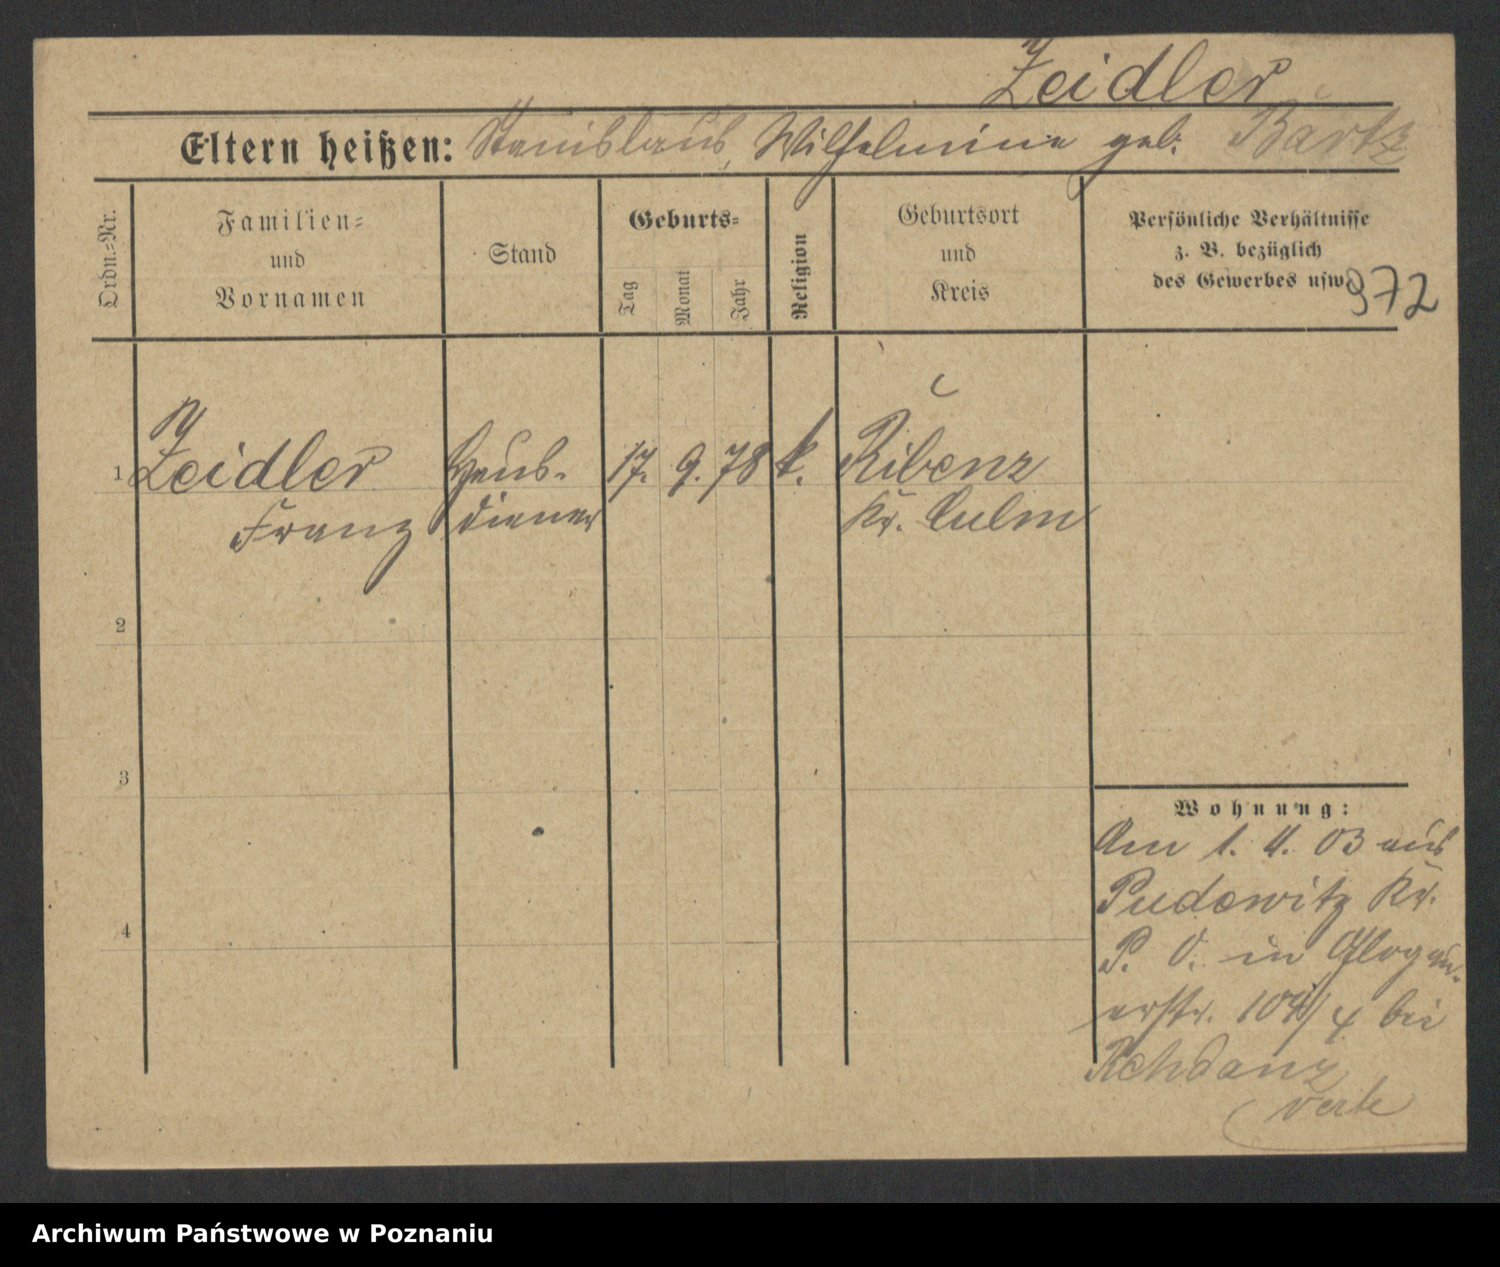 Zeidler
Eltern heißen: Stanislaus, Wilhelmine geb. Bartz
Ordn.-Nr.
Familien-
und
Vornamen
Stand
Geburts-
Tag
Monat
Jahr
Religion
Geburtsort
und
Kreis
Persönliche Verhältnisse
z. B. bezüglich
des Gewerbes usw.
972
1 Zeidler Haus- 17. 9. 78 k. Ribenz
Franz diener Kr. Culm
2
3
4
Wohnung:
Am 1. 4. 03 aus
Pudewitz Kr.
P. O. in Glogau-
erstr. 104/4 bei
Rehdanz